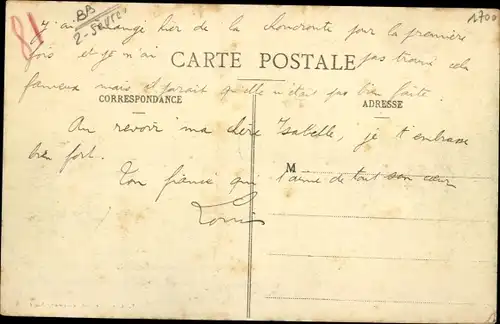 81
BB
2-Sèvres
1700
J'ai mangé hier de la choucroute pour la première
fois et je n'ai pas trouvé cela
CARTE POSTALE
fameux mais il parait qu'elle n'était pas bien faite.
CORRESPONDANCE
ADRESSE
Au revoir ma chère Isabelle, je t'embrasse
bien fort.
M
Ton fiancé qui t'aime de tout son cœur
Louis